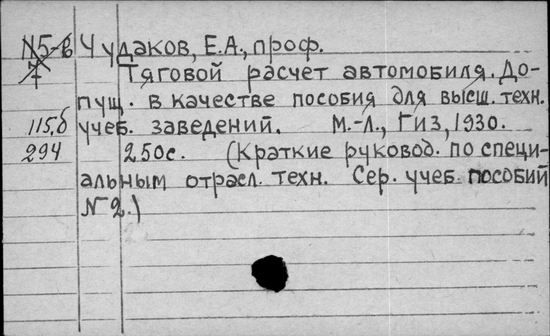 N5-в Чудаков, Е.А., проф.
7 Тяговой расчет автомобиля. До-
пущ. в качестве пособия для высш. техн.
115,б учеб. заведений. М.-Л., Гиз, 1930.
294 250с. (Краткие руковод. по специ-
альным отрасл. техн. Сер. учеб. пособий
N 2.)